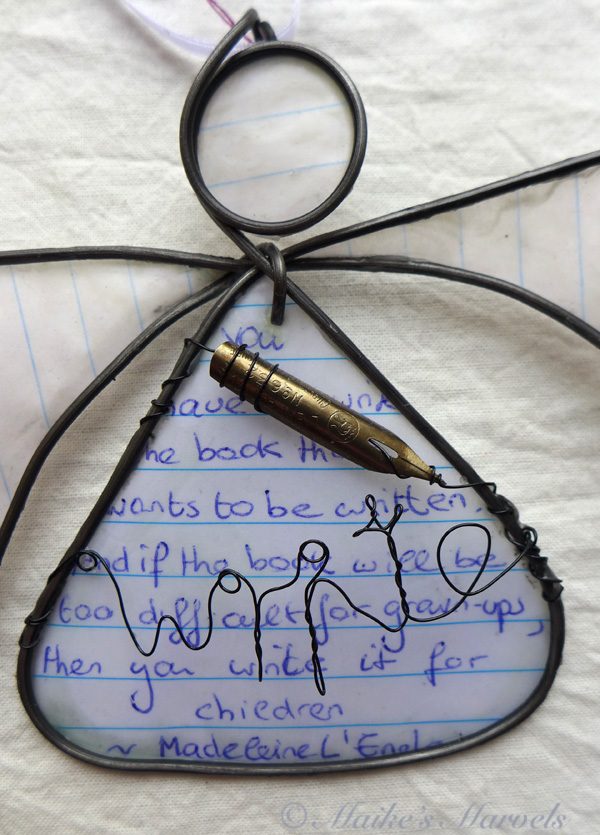 you
have
the book
wants to be written.
and if the book will be
too difficult for grown-ups,
then you write it for
children
~ Madeleine L'Engle
write
© Maike's Marvels